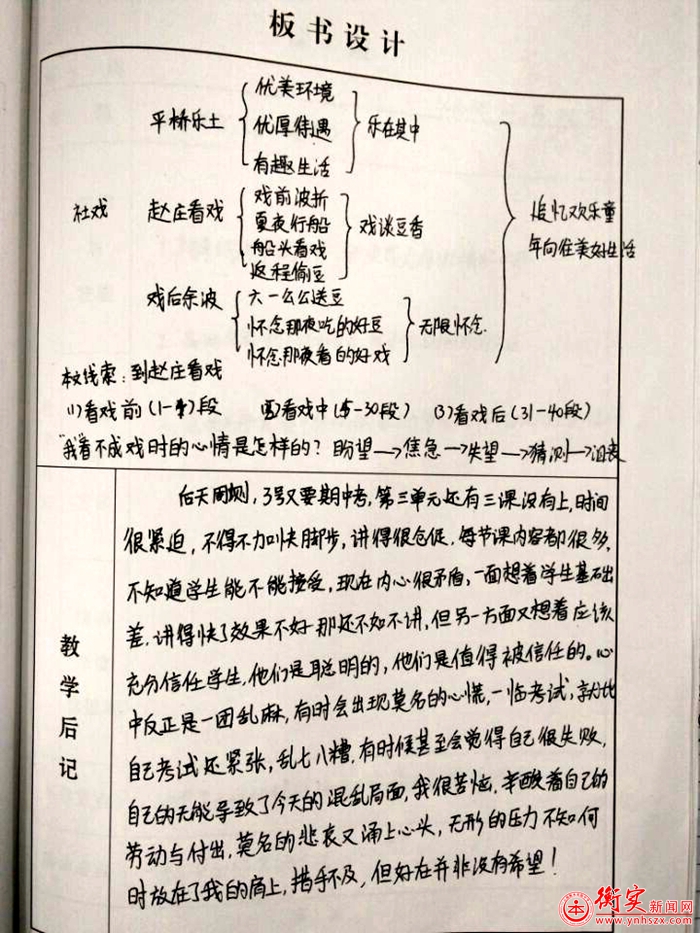 板书设计
平桥乐土
优美环境
优厚待遇
有趣生活
乐在其中
社戏
赵庄看戏
戏前波折
夏夜行船
船头看戏
返程偷豆
戏谈豆香
追忆欢乐童
年向往美好生活
戏后余波
六一公公送豆
怀念那夜吃的好豆
怀念那夜看的好戏
无限怀念
本文线索:到赵庄看戏
(1)看戏前(1-4)段 (2)看戏中(5-30段) (3)看戏后(31-40段)
"我"看不成戏时的心情是怎样的?盼望→焦急→失望→猜测→沮丧
教学后记
后天周测,3号又要期中考,第三单元还有三课没有上,时间
很紧迫,不得不加快脚步,讲得很仓促,每节课内容都很多,
不知道学生能不能接受,现在内心很矛盾,一面想着学生基础出
差,讲得快了效果不好那还不如不讲,但另一方面又想着应该
充分信任学生,他们是聪明的,他们是值得被信任的。心
中反正是一团乱麻,有时会出现莫名的心慌,一临考试,就比
自己考试还紧张,乱七八糟,有时候甚至会觉得自己很失败,
自己的无能导致了今天的混乱局面,我很苦恼,辛酸着自己的
劳动与付出,莫名的悲哀又涌上心头,无形的压力不知何
时放在了我的肩上,措手不及,但好在并非没有希望!
衡实新闻网
www.ynhszx.com